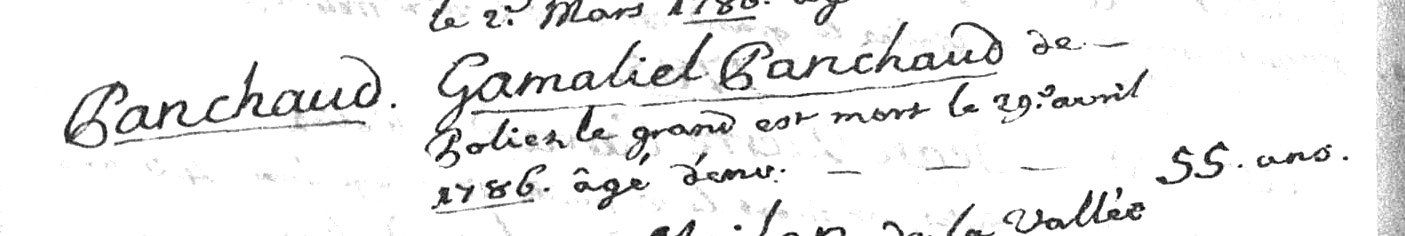 le 2.e Mars 1786.
Panchaud. Gamaliel Panchaud de —
Poliez le grand est mort le 29.e avril
1786. âgé d'env. — — — 55. ans.
de la Vallée